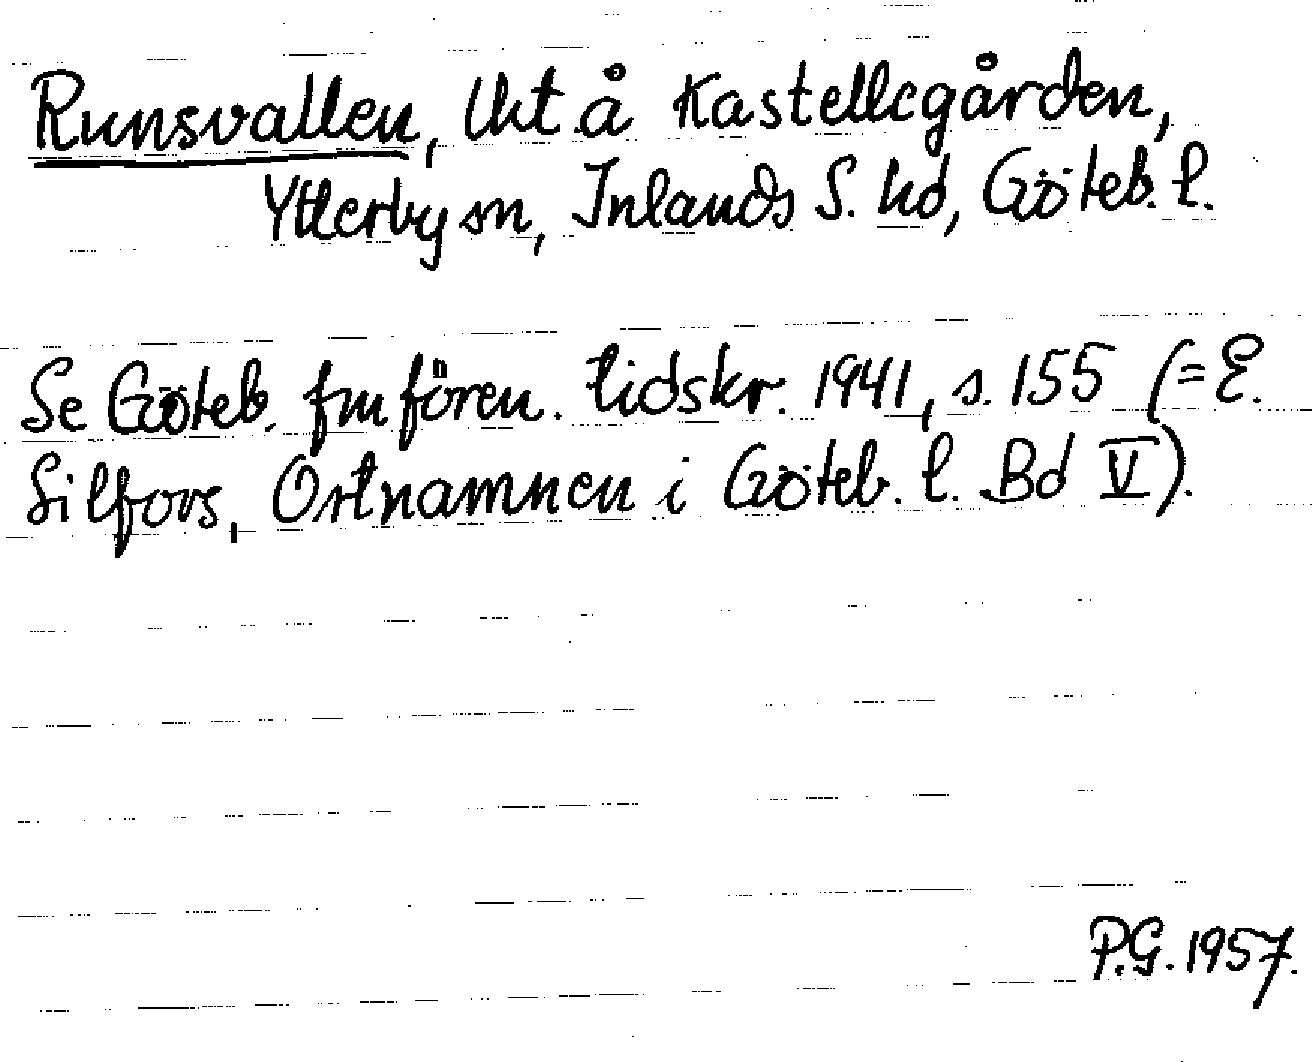 Runsvallen, lkt å Kastellegården,
Ytterby sn, Inlands S. hd, Göteb. l.
Se Göteb. fmfören. tidskr. 1941, s. 155 (= E.
Silfors, Ortnamnen i Göteb. l. Bd V).
P.G. 1957.